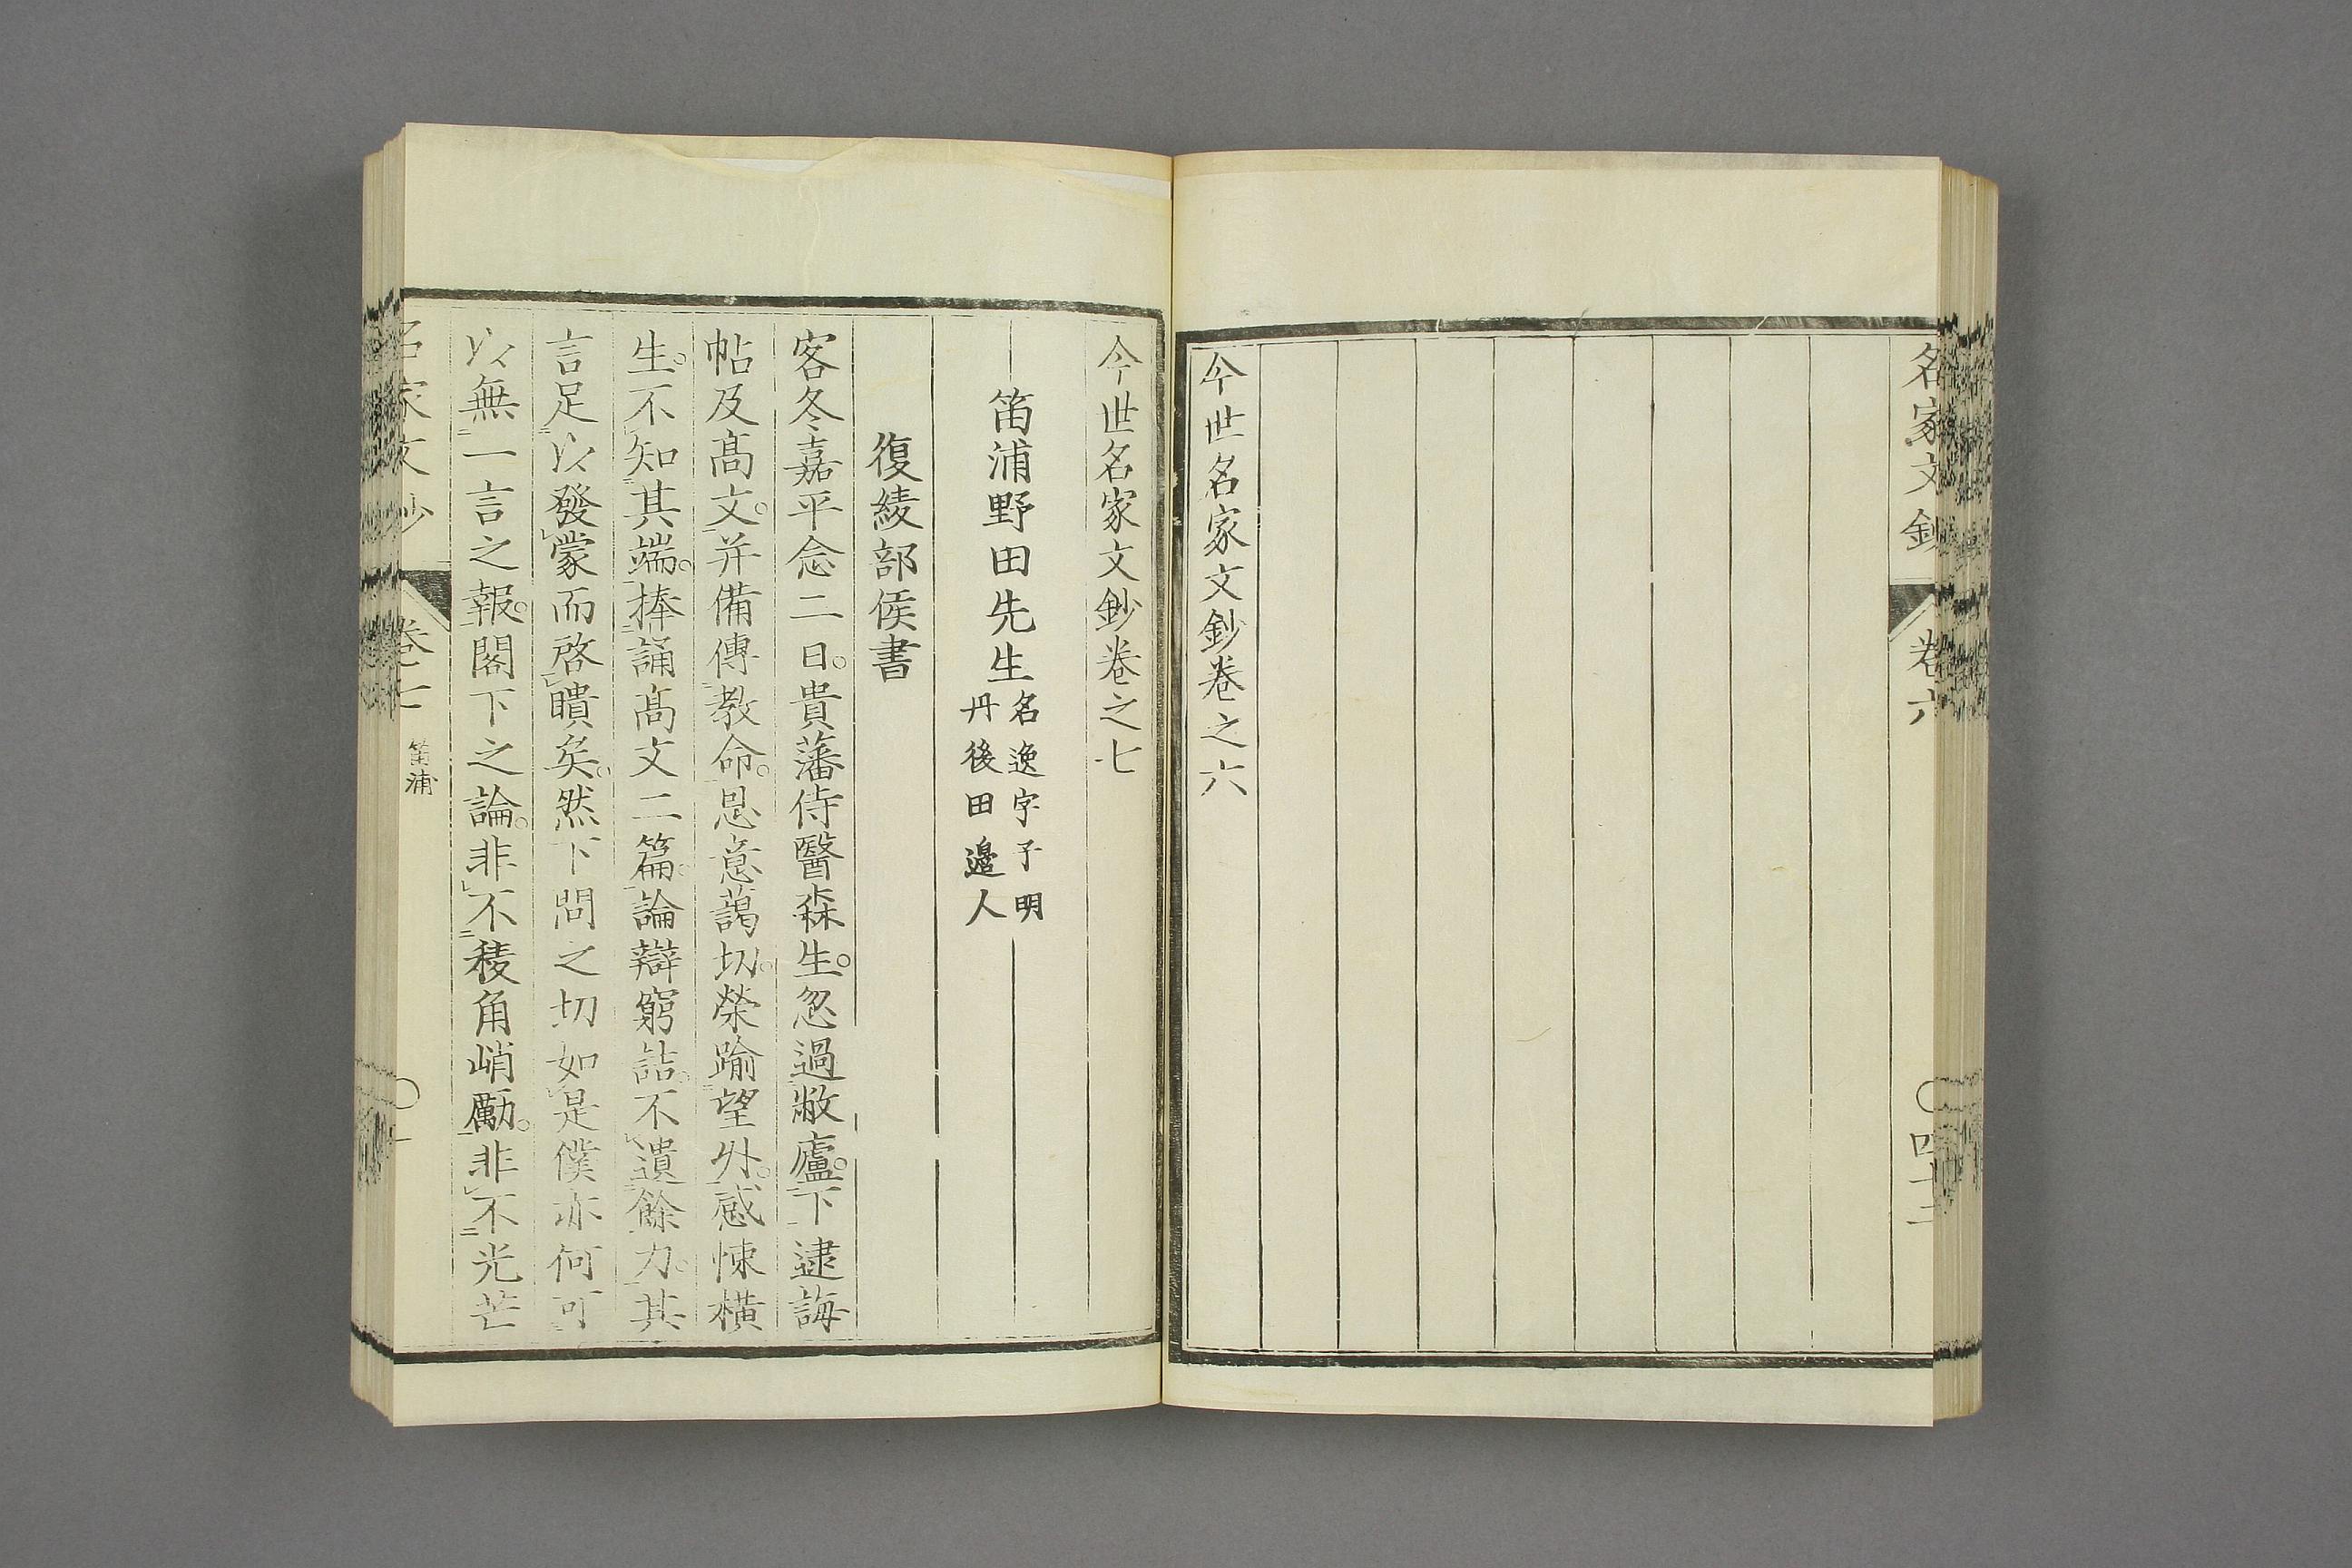 名家文鈔 卷六 四十二
今世名家文鈔卷之六
今世名家文鈔卷之七
笛浦野田先生 名逸字子明 丹後田邊人
復綾部侯書
客冬嘉平念二日。貴藩侍醫森生。忽過敝廬。下逮誨
帖及高文。并備傳教命。恩意藹切。榮踰望外。感悚橫
生。不知其端。捧誦高文二篇。論辯窮詰。不遺餘力。其
言足以發蒙而啓瞶矣。然下問之切如是僕亦何可
以無一言之報。閣下之論。非不稜角峭厲。非不光芒
名家文鈔 卷七 笛浦 一